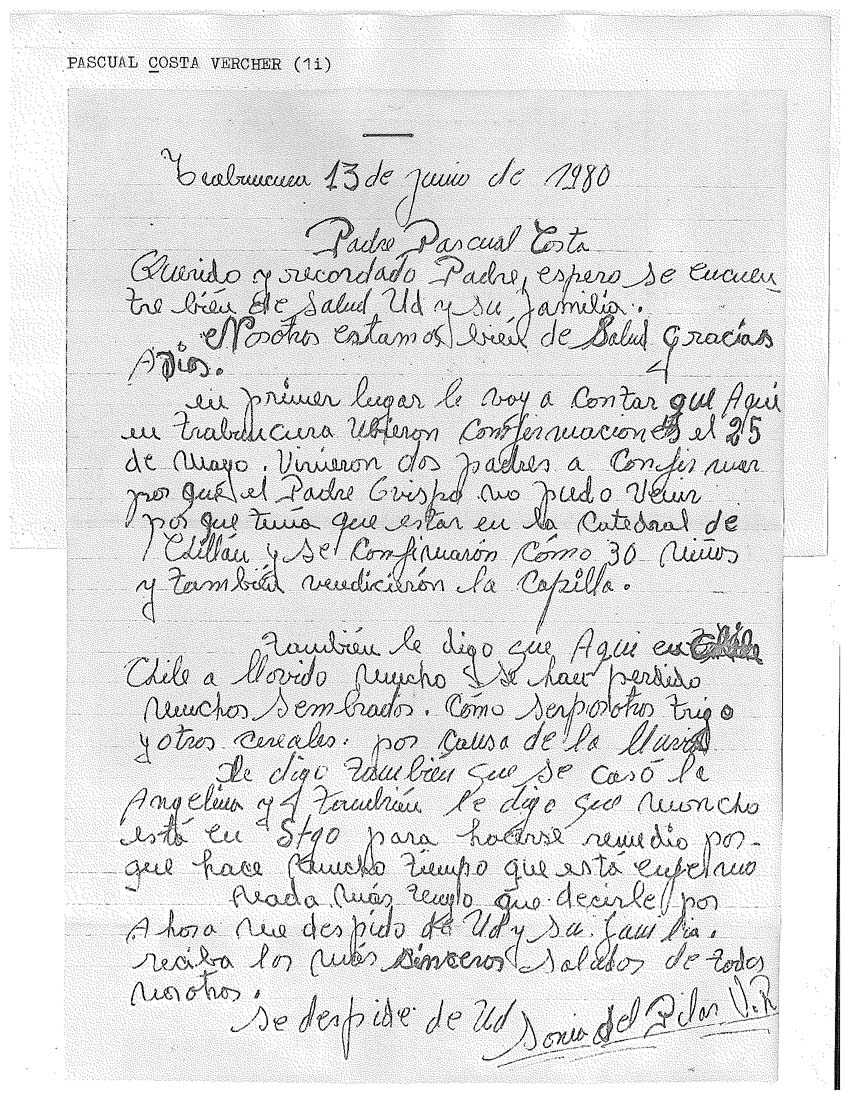 PASCUAL COSTA VERCHER (1i)
Trabuncura 13 de junio de 1980
Padre Pascual Costa
Querido y recordado Padre, espero se encuen
tre bién de Salud Ud y su familia.
Nosotros estamos bién de Salud Gracias
A Dios.
en primer lugar le voy a contar que Aquí
en Trabuncura Ubieron Confirmaciones el 25
de Mayo. Vinieron dos padres a Confirmar
por qué el Padre Ovispo no pudo Venir
por que tenía que estar en la Catedral de
Chillán y se Confirmarón cómo 30 niños
y también vendicierón la Capilla.
también le digo que Aquí en
Chile a llovido mucho y se han perdido
muchos sembrados. Cómo ser porotos trigo
y otros cereales. por causa de la lluvia
Le digo también que se casó la
Angelina y también le digo que moncho
está en Stgo para hacerse remedio por-
que hace mucho tiempo que está enfermo
Nada más tengo que decirle por
Ahora me despido de Ud y su familia.
reciba los más sinceros saludos de todos
nosotros.
se despide de Ud Sonia del Pilar V.R